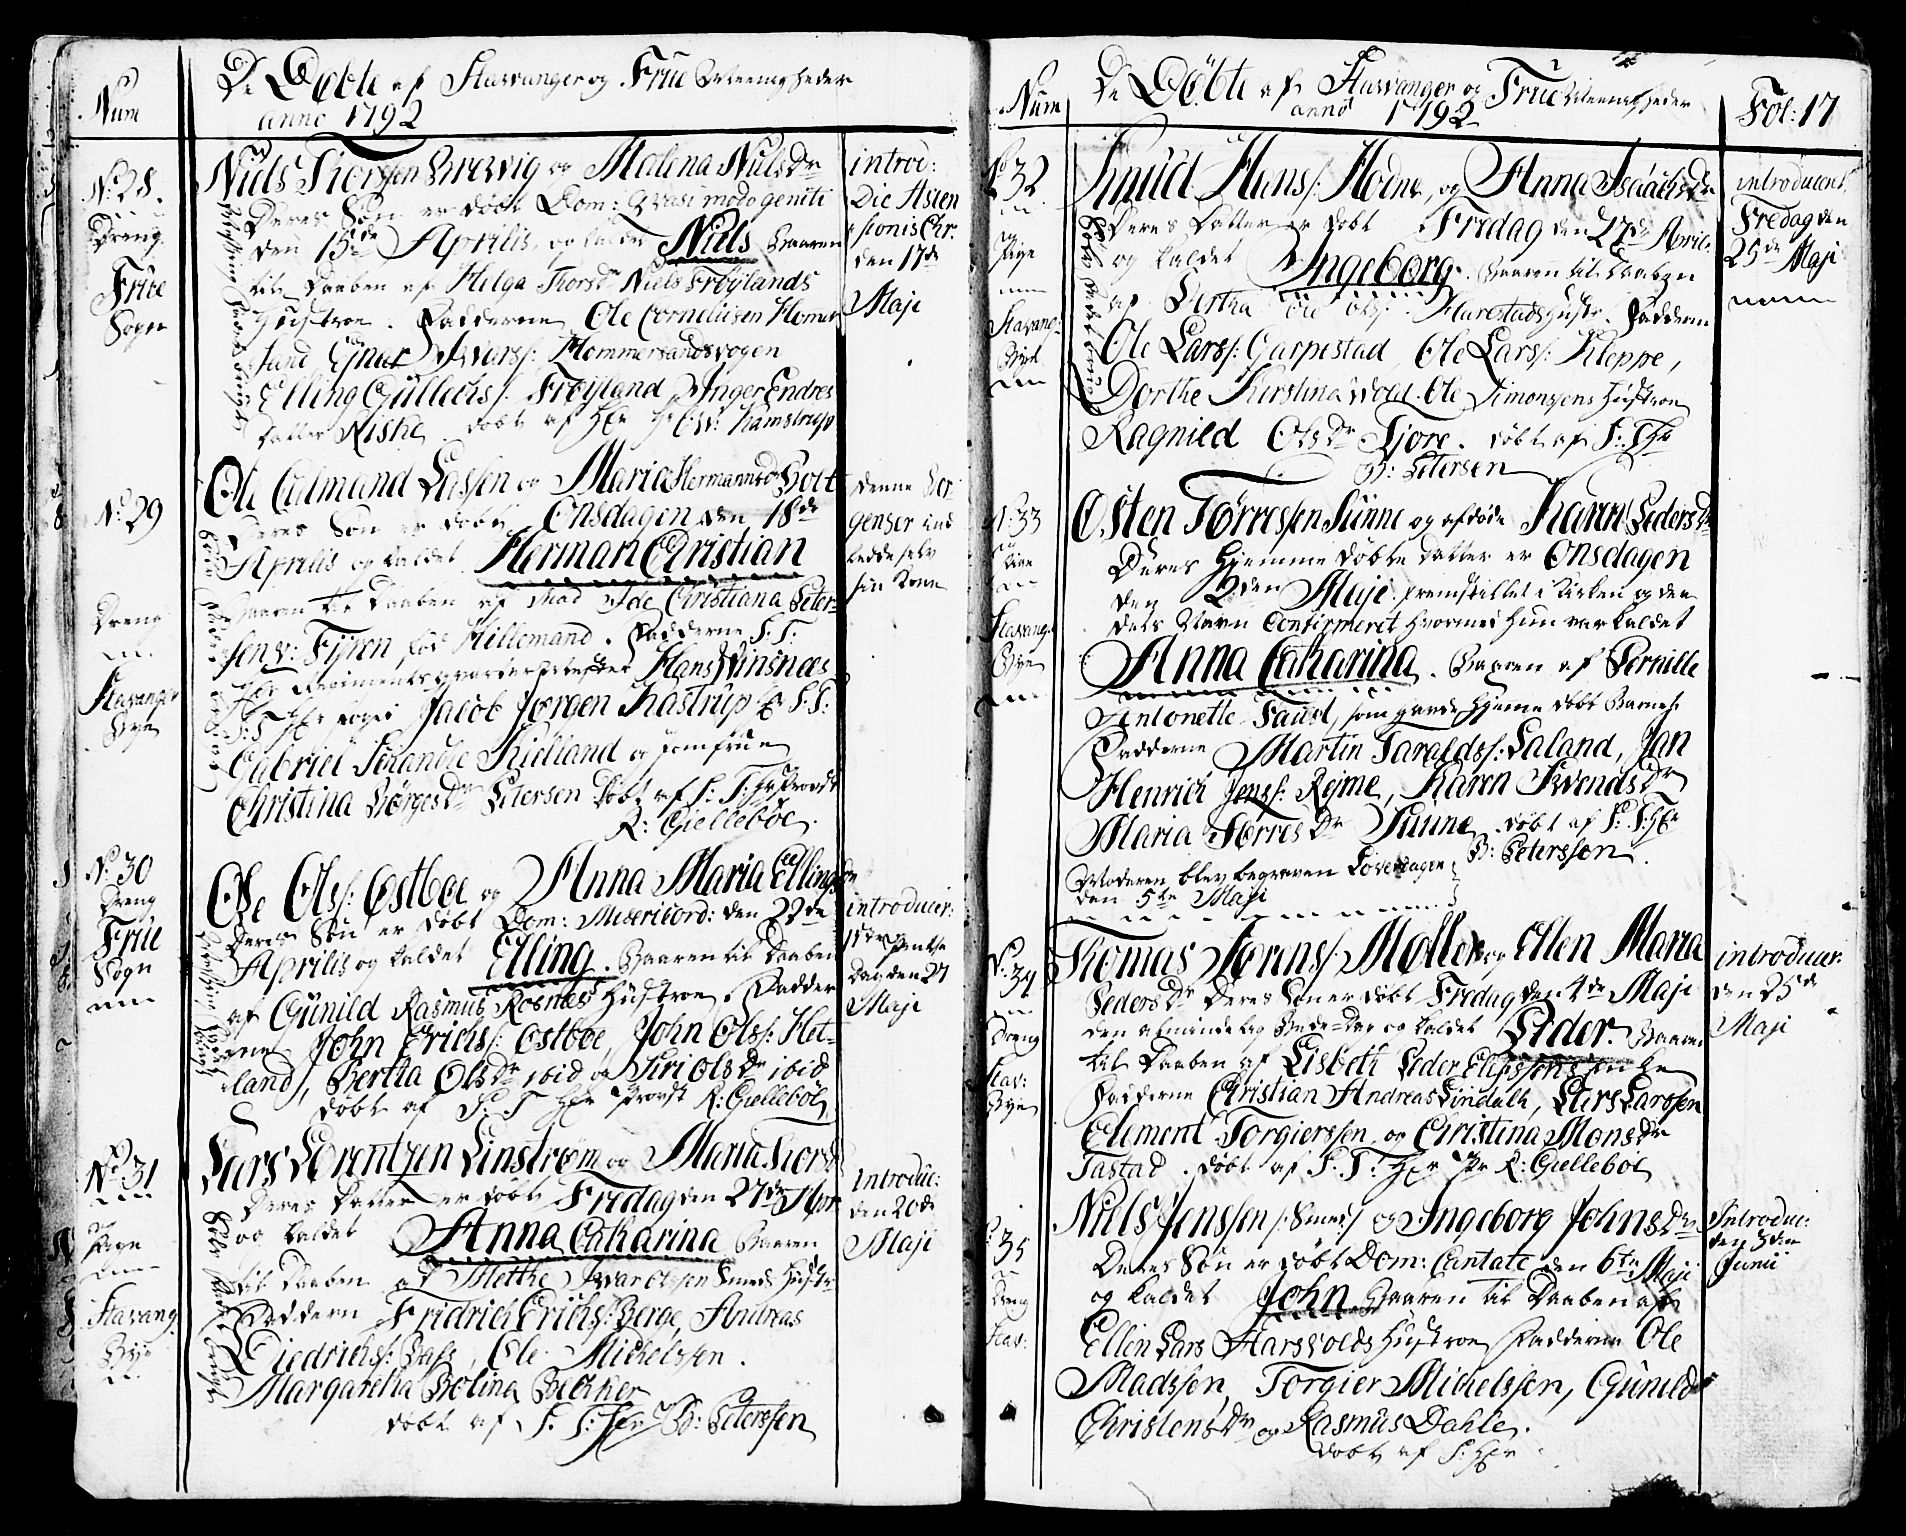 Num
De Døbte af Stavanger og Frue Meenigheder
anno 1792
No 28.
Dreng
Frue
Sogn
Niels Thorssen Brewig og Malena NielsDr
Deres Søn er døbt Dom: Qvasimodogeniti
den 15de Aprilis, og kaldet Niels Baaren
til Daaben af Helga ThorsD Niels Frøylands
Hustroe. Fadderne Ole Corneliusen Homer
sand Ejner Ivarss: Hommersandsvogen
Elling Gullichs: Frøyland Inger Endres
Datter Riske. døbt af Hr Kamstrup
introd:
Die Asten
sionis Chr:
den 17de
Maji
No 29
Dreng
Stavanger
Bye
Ole Calmand Lassen og Maria Hermansd
Deres Søn er døbt Onsdagen den 18de
Aprilis og kaldet Herman Christian
Baaren til Daaben af Mad Ide Christiana Peter-
sen v: Fyren, fød Hillemand. Fadderne S: T:
Hr Regimentsqvarteermester Hans Winsnes
S: T Hr foged Jacob Jørgen Kastrup S: T:
Gabriel Schandie Kielland og Jomfrue
Christina BørgesDr Petersen døbt af S: T: Hr Provst
R: Gielleboe.
denne Ber
genser ind
ledde selv
sin Kone
No 30
Dreng
Frue
Sogn
Ole Olss: Østboe og Anna Maria EllingsDr
Deres Søn er døbt Dom: Misericord: den 22de
Aprilis og kaldet Elling. Baaren til Daaben
af Gunild Rasmus Rosnæs Hustroe. Fadder
ne John Erichs: Østboe, John Olss: Het-
land, Bertha OlsDr ibid og Siri OlsDr ibid
døbt af S: T Hr Provst R: Gielleboe
introducer:
1ste Pintse
Dag den 27
Maji
No 31
Pige
Stavang:
Bye
Lars Lorentzen Linstrøm og Maria Thors
Deres Datter er døbt Fredag den 27de Apr
og kaldet Anna Catharina Baaren
til Daaben af Mette Ivar Olssen Smeds Hustr
Faddern Fridrich Erichs: Berge, Andreas
Diedrichs: Bass, Ole Michelssen.
Margaretha Bolina Becker
døbt af S. T: Hr B: Peterssen
introduc:
den 20de
Maji
Num
De Døbte af Stavanger og Frue Meenigheder
anno 1792
Fol: 17
No 32
Pige
Stavang:
Bye
Knud Hans: Hodne, og Anna IsaachsDr
Deres Datter er døbt Fredag den 27de April:
og kaldet Ingeborg. Baaren til Daaben
af Bertha Ole Harestads Hustr. Fadderne
Ole Larss: Garpestad, Ole Larss: Kleppe,
Dorthe Kirstina Wold. Ole Simonsens Hustroe
Ragnild OlsDr Tjore. døbt af S: T Hr
B: Petersen
introducert
Fredag den
25de Maji
No 33
Pige
Stavang:
Bye
Østen Tørressen Sunne og afdøde Karen PedersDr
Deres Hjemme døbte Datter er Onsdagen
den 2den Maji fremstillet i Kirken og den
dets Navn Confirmeret hvormed hun var kaldet
Anna Catharina. Baaren af Pernille
Antonette Faust, som gavde Hjemme døbt Barnet.
Fadderne Martin Taraldss: Laland, Jan
Henrich Jenss: Rejme, Karen SwendsDr
Maria TørresDr Sunne. døbt af S: T: Hr
B: Peterssen.
Moderen blev begraven Løverdagen
den 5te Maji
No 34
Dreng
Stav:
Bye
Thomas Sørenss: Møller og Ellen Maria
PedersDr Deres Søn er døbt Fredag den 4de Maji
den almindelig Bede-Dag og kaldet Peder. Baaren
til Daaben af Lisbeth Peder Elissens
Fadderne Christian Andreas Lindalh, Lars Larssen
Clement Torgierssen, og Christina MonsDr
Tastad. døbt af S. T: Hr Pr R: Gielleboe
introducer:
den 25de
Maji
No 35
Dreng
Stav:
Niels Jenssen /:Smed/ og Ingeborg JohnsDr
Deres Søn er døbt Dom: Cantate den 6te Maji
og kaldet John. Baaren til Daaben af
Ellin Lars Harsvolds Hustroe Fadderne Ole
Madssen, Torgier Michelssen, Gunild
ChristensDr og Rasmus Dahle.
døbt af S: Hr
Introduc:
den 3den
Junii